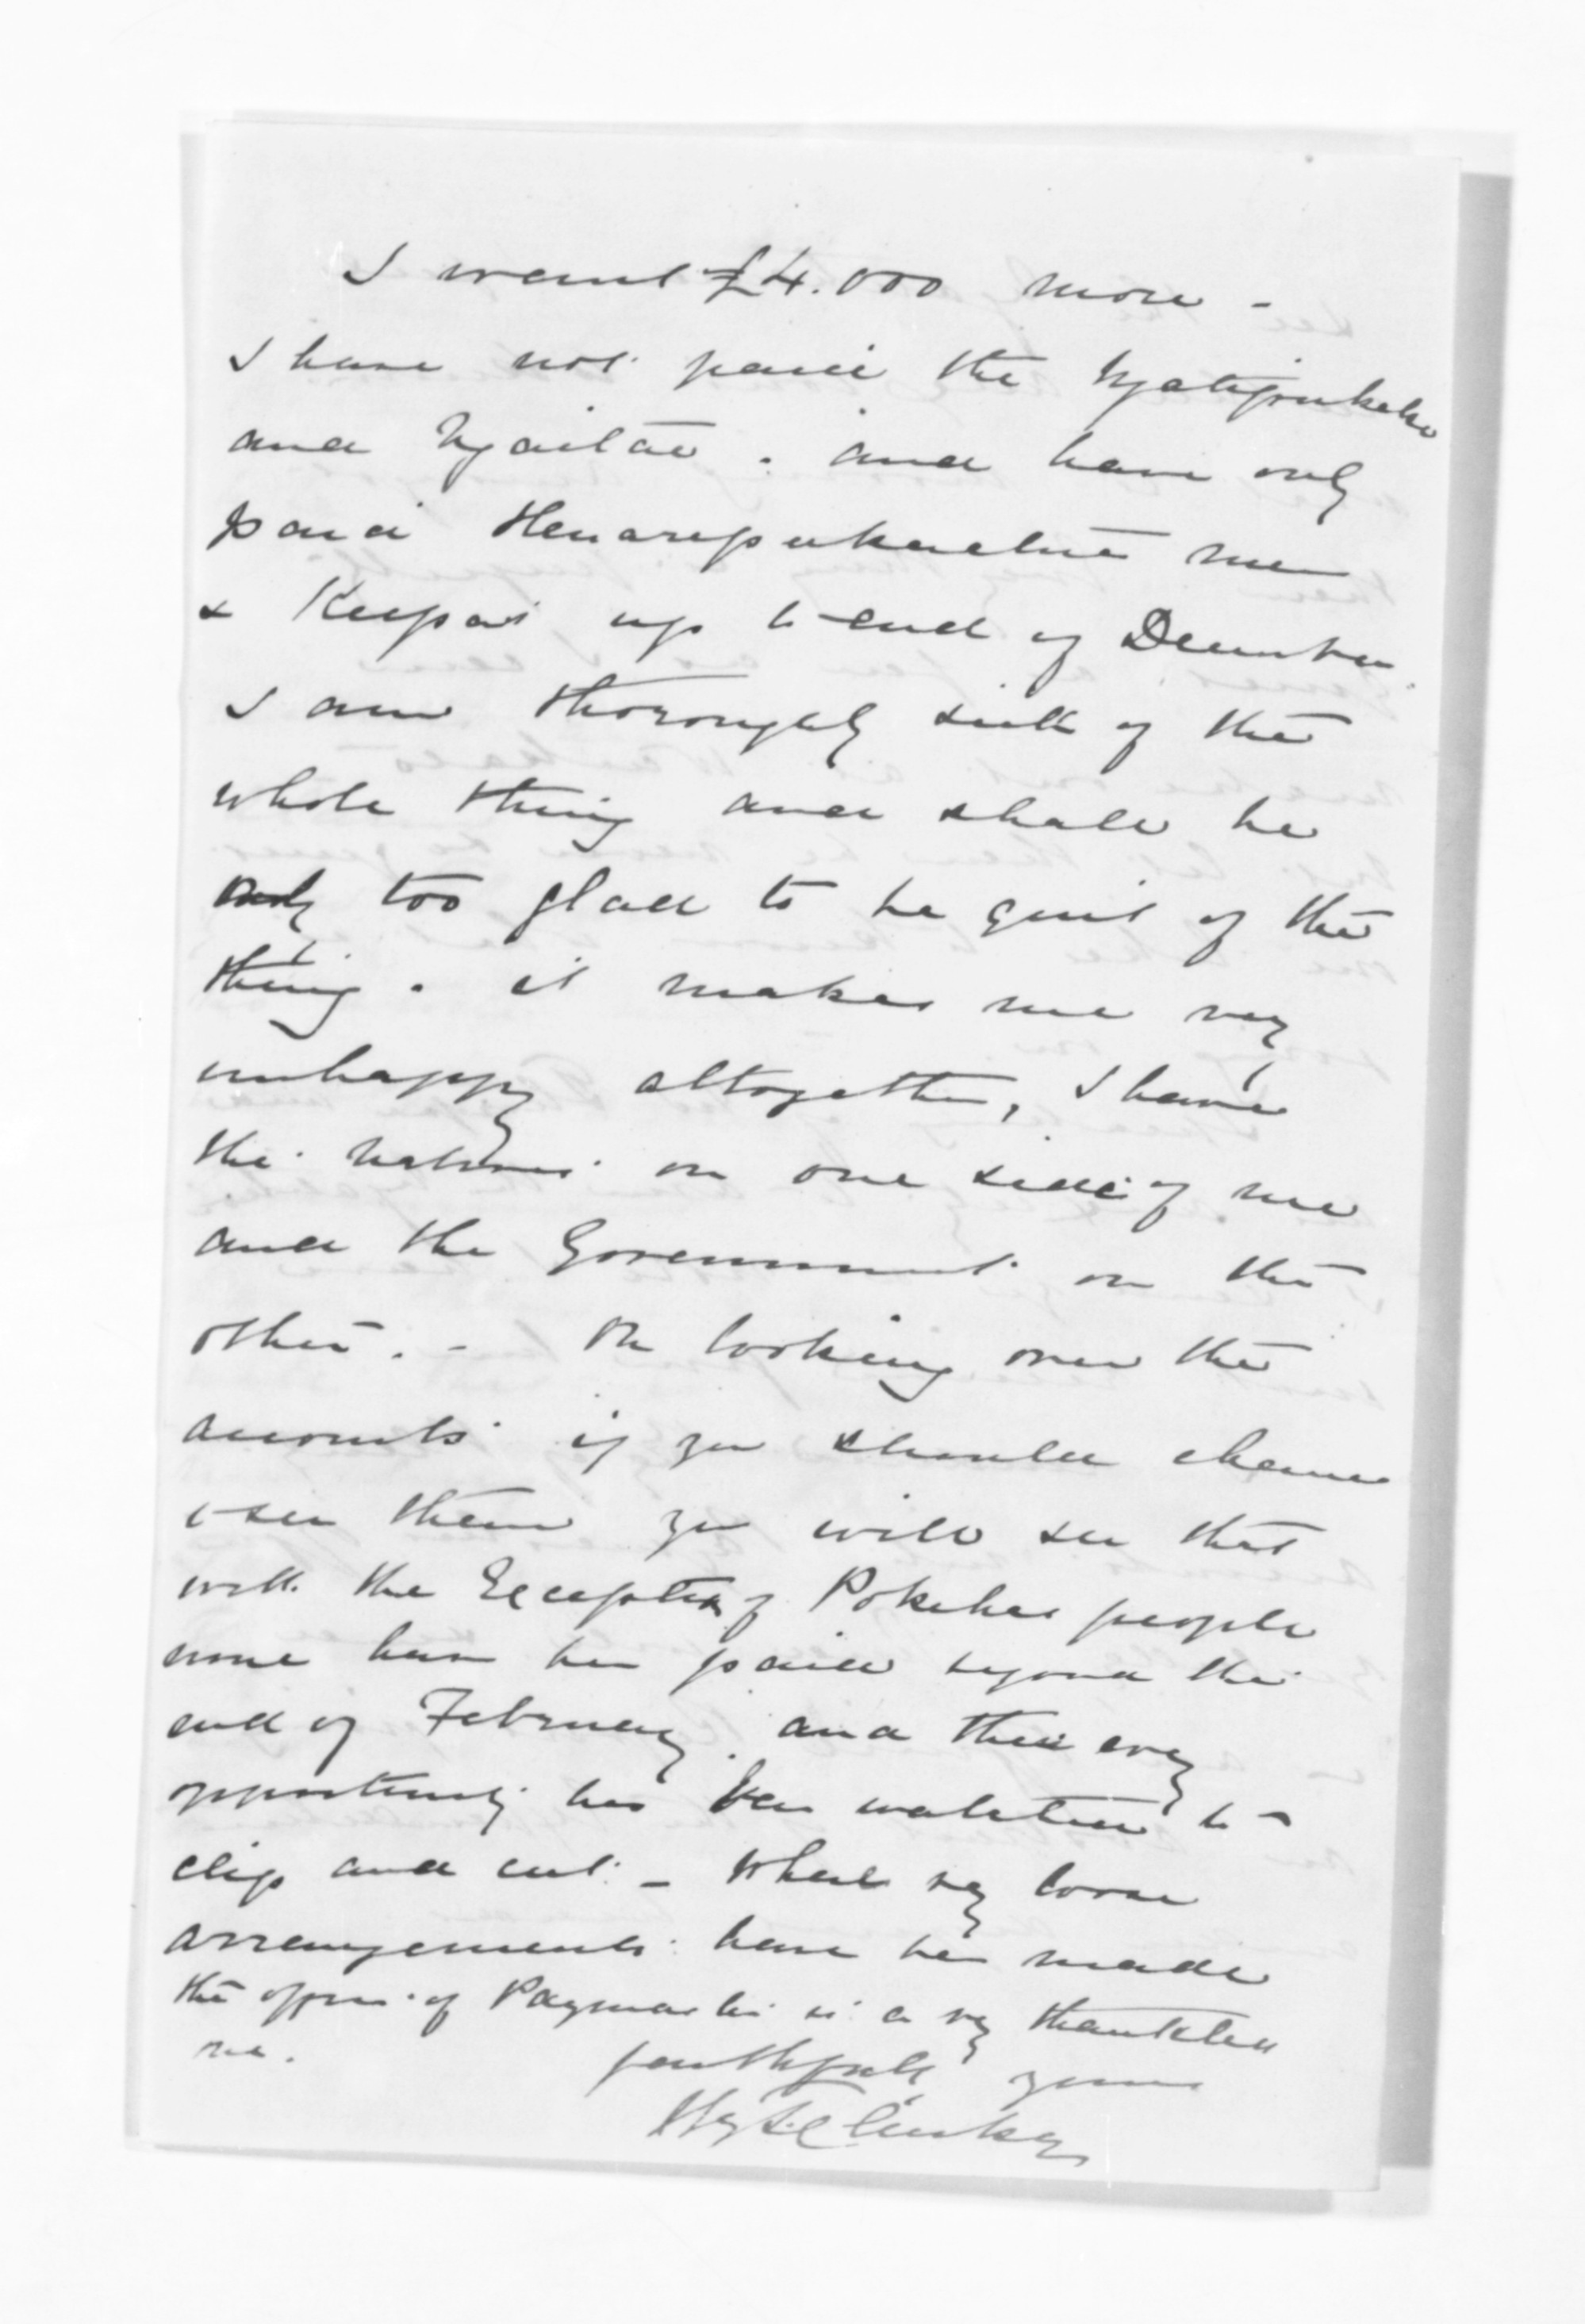 I want £4.000 more -
I have not paid the Ngatipukeko
and Ngaitai. and have only
paid Henarepukuatua men
& Keepas up to end of December
I am thoroughly sick of the
whole thing and shall be
only too glad to be quit of the
thing. it makes me very
unhappy altogether, I have
the natives on one side of me
and the Government on the
other. - On looking over the
accounts if you should chance
to see them you will see that
with the Exception of Pokehas people
none have been paid beyond the
end of February. and then every
opportunity has been watched to
clip and cut - Where very loose
arrangements have been made
the office of Paymaster is a very thankless
one. faithfully yours
Hy T. Clarke